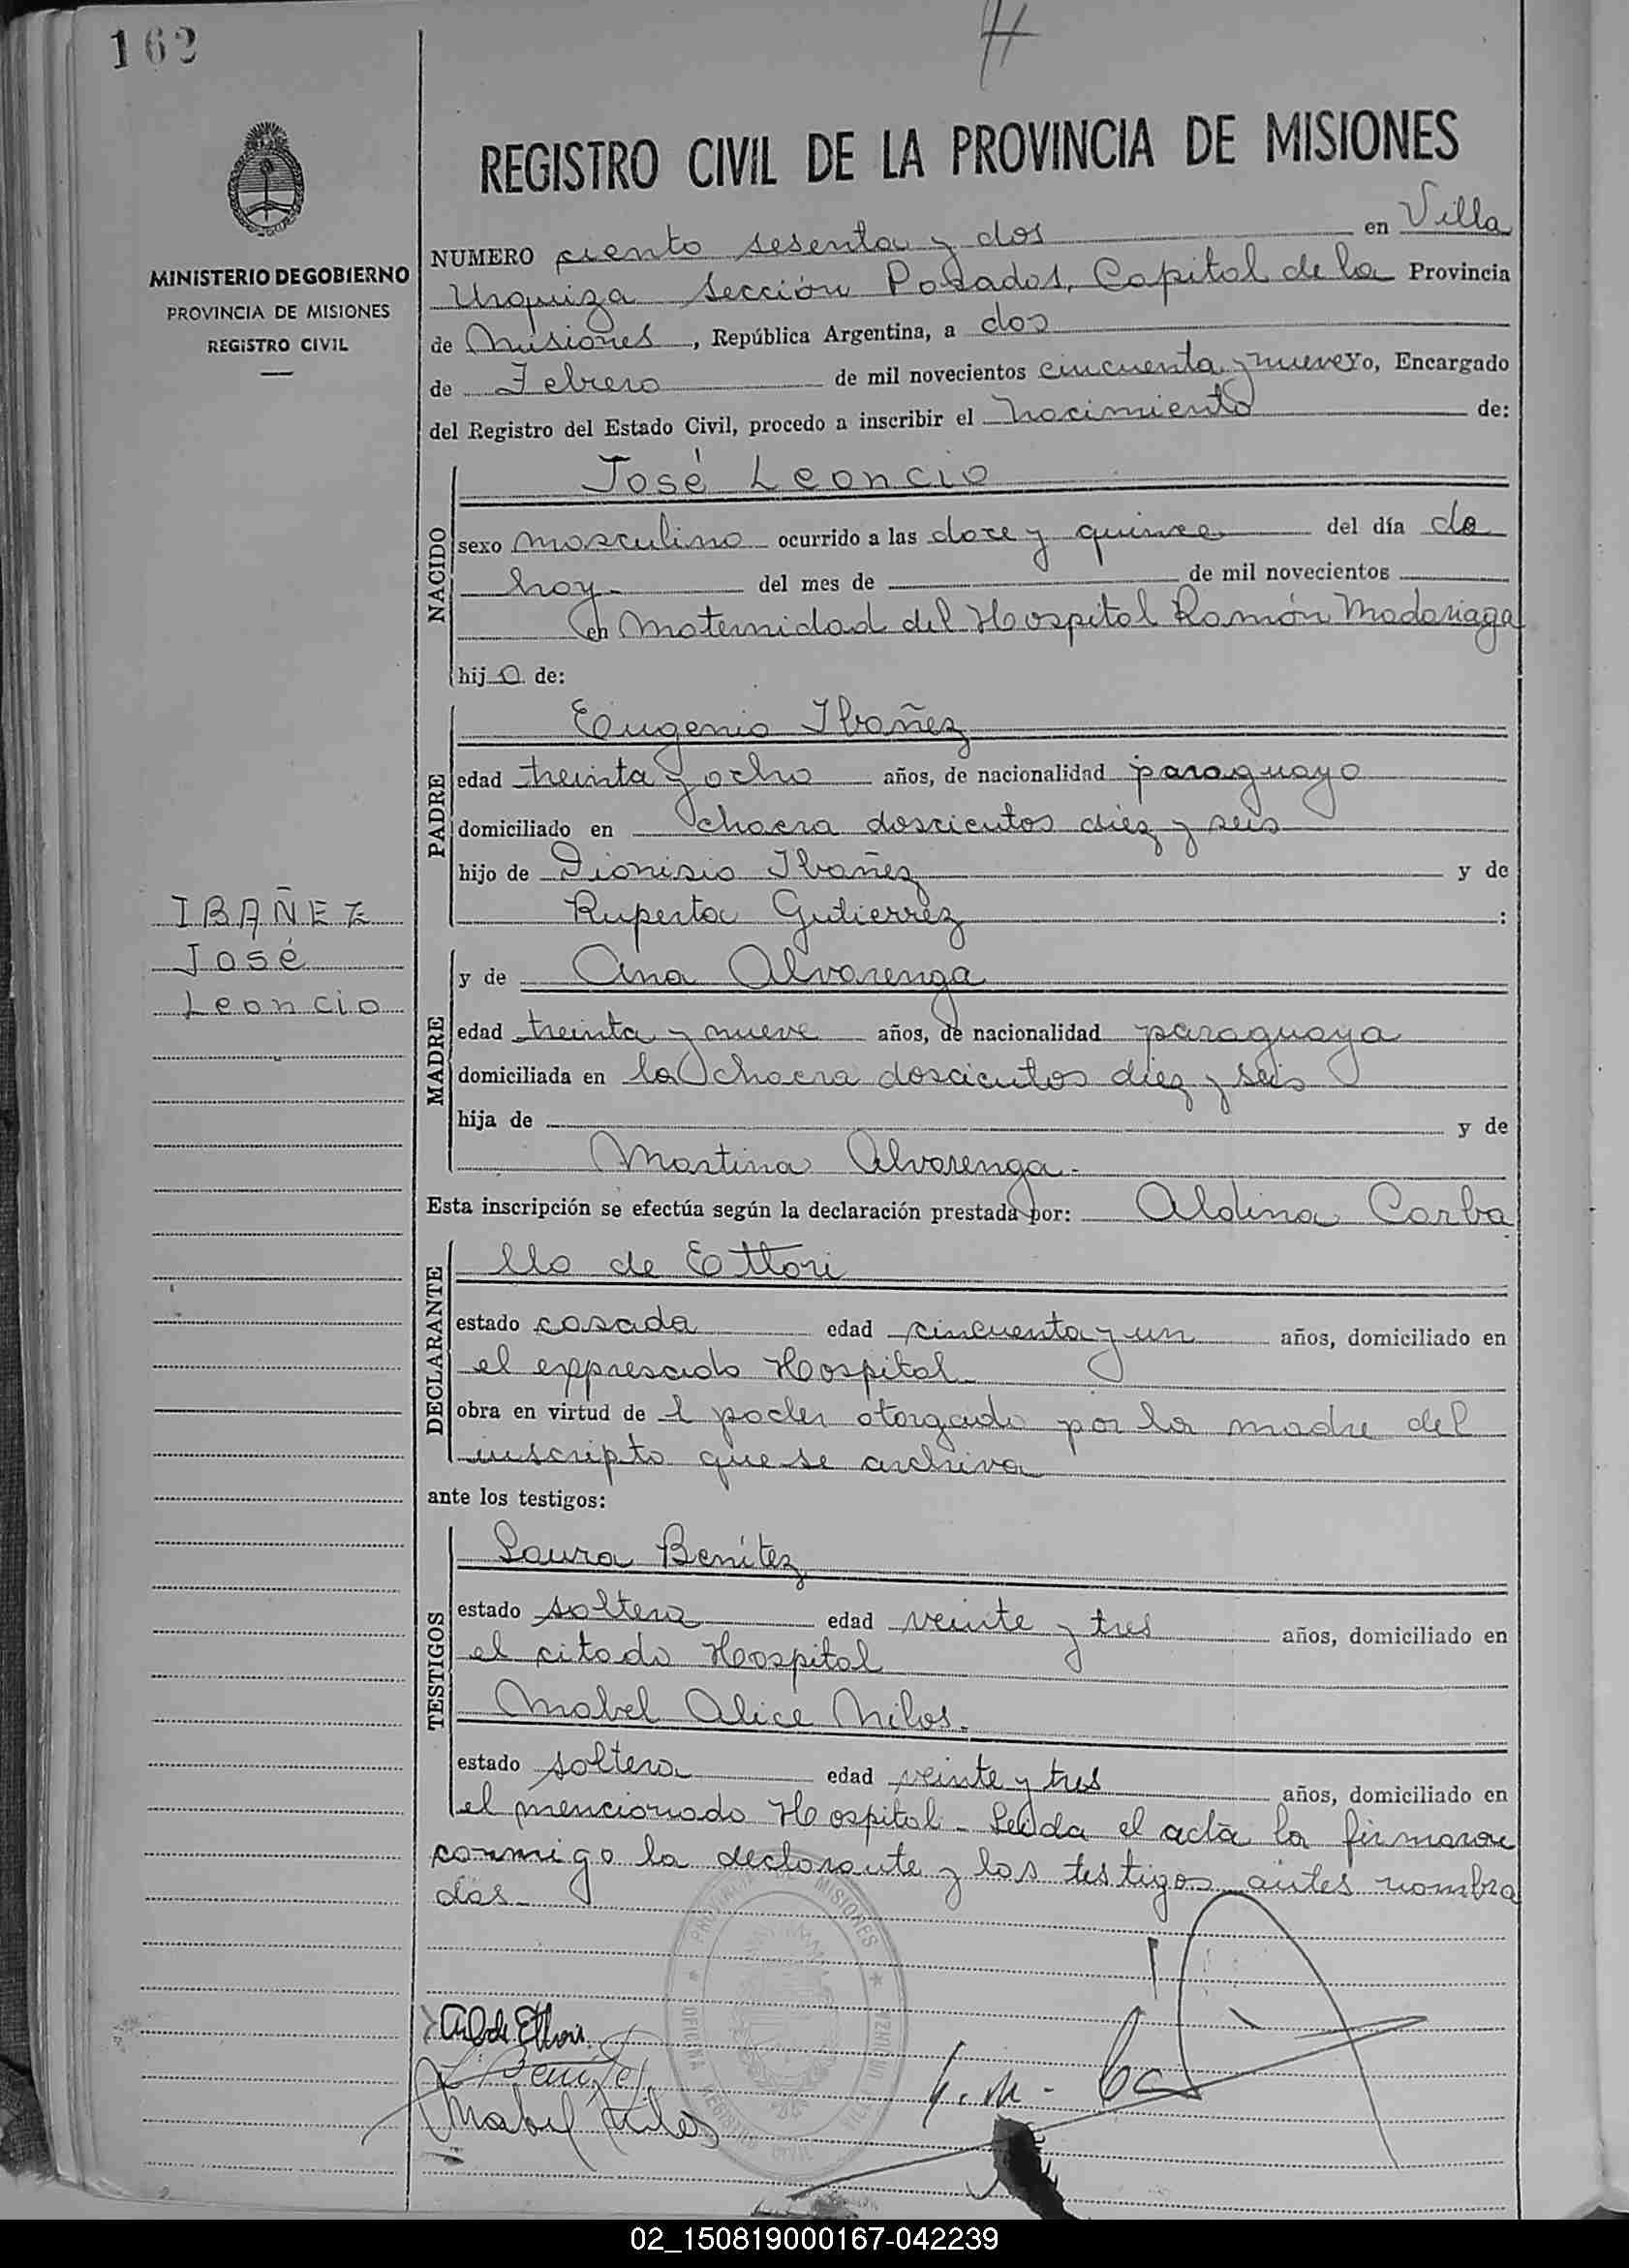 162
REGISTRO CIVIL DE LA PROVINCIA DE MISIONES
MINISTERIO DE GOBIERNO
PROVINCIA DE MISIONES
REGISTRO CIVIL
NUMERO ciento sesenta y dos en Villa
Urquiza Sección Posadas, Capital de la Provincia
de Misiones, República Argentina, a dos
de Febrero de mil novecientos cincuenta y nueve Yo, Encargado
del Registro del Estado Civil, procedo a inscribir el nacimiento de:
NACIDO
José Leoncio
sexo masculino ocurrido a las doce y quince del día de
hoy del mes de de mil novecientos
en Maternidad del Hospital Ramón Madariaga
hijo de:
PADRE
Eugenio Ibañez
edad treinta y ocho años, de nacionalidad paraguayo
domiciliado en chacra doscientos diez y seis
hijo de Dionisio Ibañez y de
Ruperta Gutierrez :
IBAÑEZ
José
Leoncio
MADRE
y de Ana Alvarenga
edad treinta y nueve años, de nacionalidad paraguaya
domiciliada en la chacra doscientos diez y seis
hija de y de
Martina Alvarenga.
Esta inscripción se efectúa según la declaración prestada por: Aldina Carba
DECLARANTE
llo de Ettori
estado casada edad cincuenta y un años, domiciliado en
el expresado Hospital
obra en virtud de l poder otorgado por la madre del
inscripto que se archiva
ante los testigos:
TESTIGOS
Laura Benítez
estado soltera edad veinte y tres años, domiciliado en
el citado Hospital
Mabel Alice Milos.
estado soltera edad veinte y tres años, domiciliado en
el mencionado Hospital - Leída el acta la firmaron
conmigo la declarante y los testigos antes nombra
dos
PROVINCIA DE MISIONES
OFICINA REGISTRO CIVIL VILLA URQUIZA
A C de Ettori
L. Benítez
Mabel Milos
02_150819000167-042239